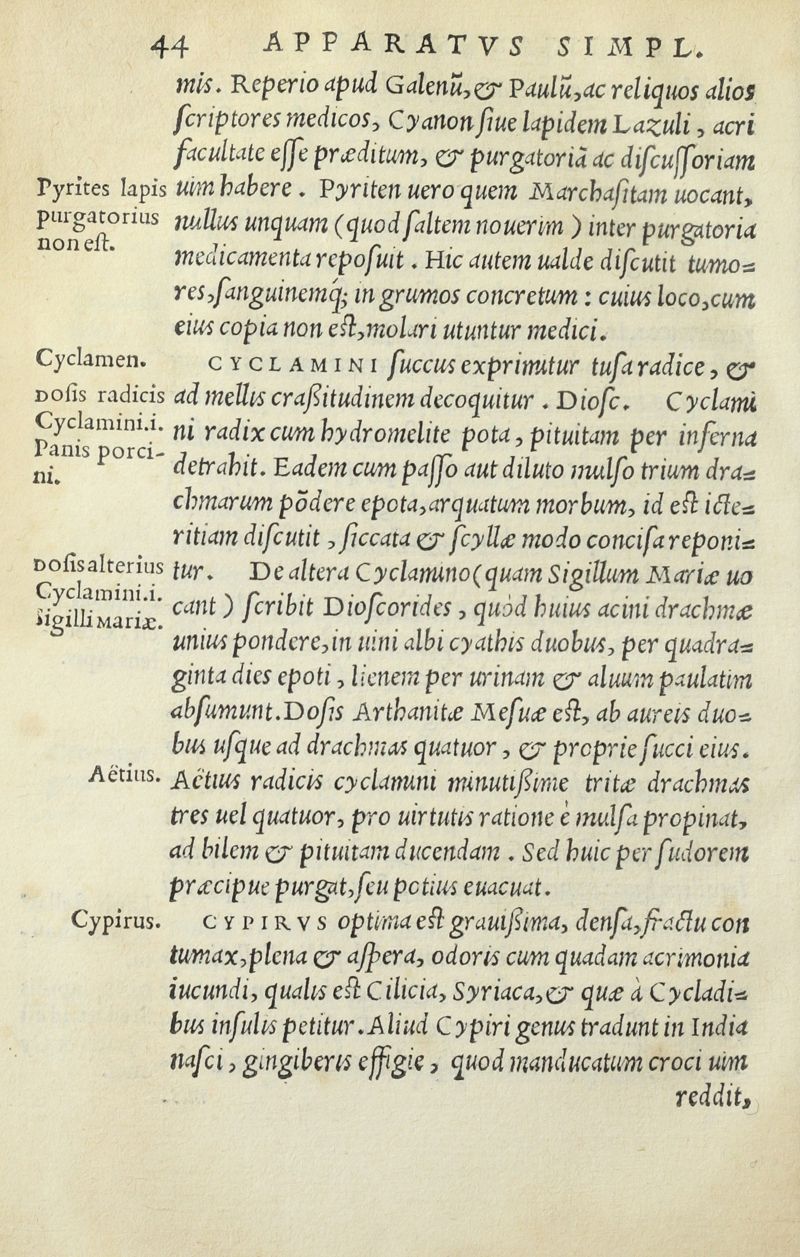 44 APPARATVS SIMPL.
mis. Reperio apud Galenũ, & Paulũ, ac reliquos alios
ſcriptores medicos, Cyanon ſiue lapidem Lazuli, acri
facultate eſſe præditum, & purgatoriã ac diſcuſſoriam
Pyrites lapis
purgatorius
non eſt.
uim habere. Pyriten uero quem Marchaſitam uocant,
nullus unquam (quod ſaltem nouerim) inter purgatoria
medicamenta repoſuit. Hic autem ualde diſcutit tumo=
res, ſanguinemq́; in grumos concretum: cuius loco, cum
eius copia non eſt, molari utuntur medici.
Cyclamen.
CYCLAMINI ſuccus exprimitur tuſa radice, &
Doſis radicis
Cyclamini.i.
Panis porci-
ni.
ad mellis craßitudinem decoquitur. Dioſc. Cyclami
ni radix cum hydromelite pota, pituitam per inferna
detrahit. Eadem cum paſſo aut diluto mulſo trium dra=
chmarum põdere epota, arquatum morbum, id eſt icte=
ritiam diſcutit, ſiccata & ſcyllæ modo conciſa reponi=
Doſis alterius
Cyclamini.i.
ſigilli Mariæ.
tur. De altera Cyclamino (quam Sigillum Mariæ uo
cant) ſcribit Dioſcorides, quòd huius acini drachmæ
unius pondere, in uini albi cyathis duobus, per quadra=
ginta dies epoti, lienem per urinam & aluum paulatim
abſumunt. Doſis Arthanitæ Meſuæ eſt, ab aureis duo=
bus uſque ad drachmas quatuor, & proprie ſucci eius.
Aëtius.
Aëtius radicis cyclamini minutißime tritæ drachmas
tres uel quatuor, pro uirtutis ratione è mulſa propinat,
ad bilem & pituitam ducendam. Sed huic per ſudorem
præcipue purgat, ſeu potius euacuat.
Cypirus.
CYPIRVS optima eſt grauißima, denſa, fractu con
tumax, plena & aſpera, odoris cum quadam acrimonia
iucundi, qualis eſt Cilicia, Syriaca, & quæ à Cycladi=
bus inſulis petitur. Aliud Cypiri genus tradunt in India
naſci, gingiberis effigie, quod manducatum croci uim
reddit,